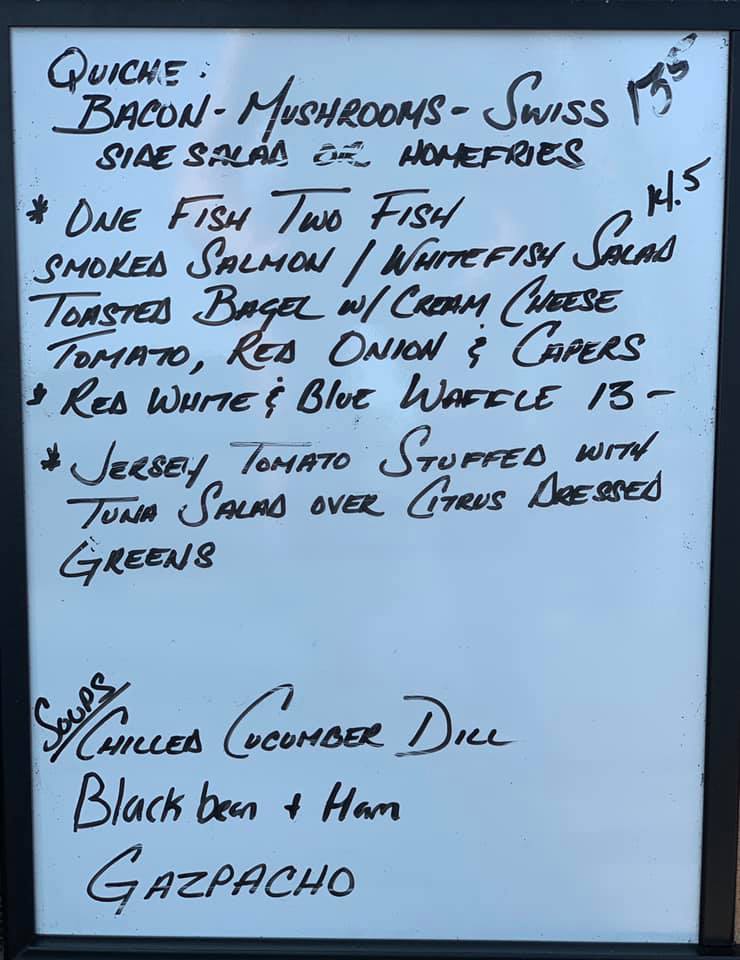 QUICHE:
BACON - MUSHROOMS - SWISS 13⁵⁰
SIDE SALAD OR HOMEFRIES
* ONE FISH TWO FISH 14.5
SMOKED SALMON / WHITEFISH SALAD
TOASTED BAGEL W/ CREAM CHEESE
TOMATO, RED ONION & CAPERS
* RED WHITE & BLUE WAFFLE 13 -
* JERSEY TOMATO STUFFED WITH
TUNA SALAD OVER CITRUS DRESSED
GREENS
SOUPS/
CHILLED CUCUMBER DILL
Black bean + Ham
GAZPACHO